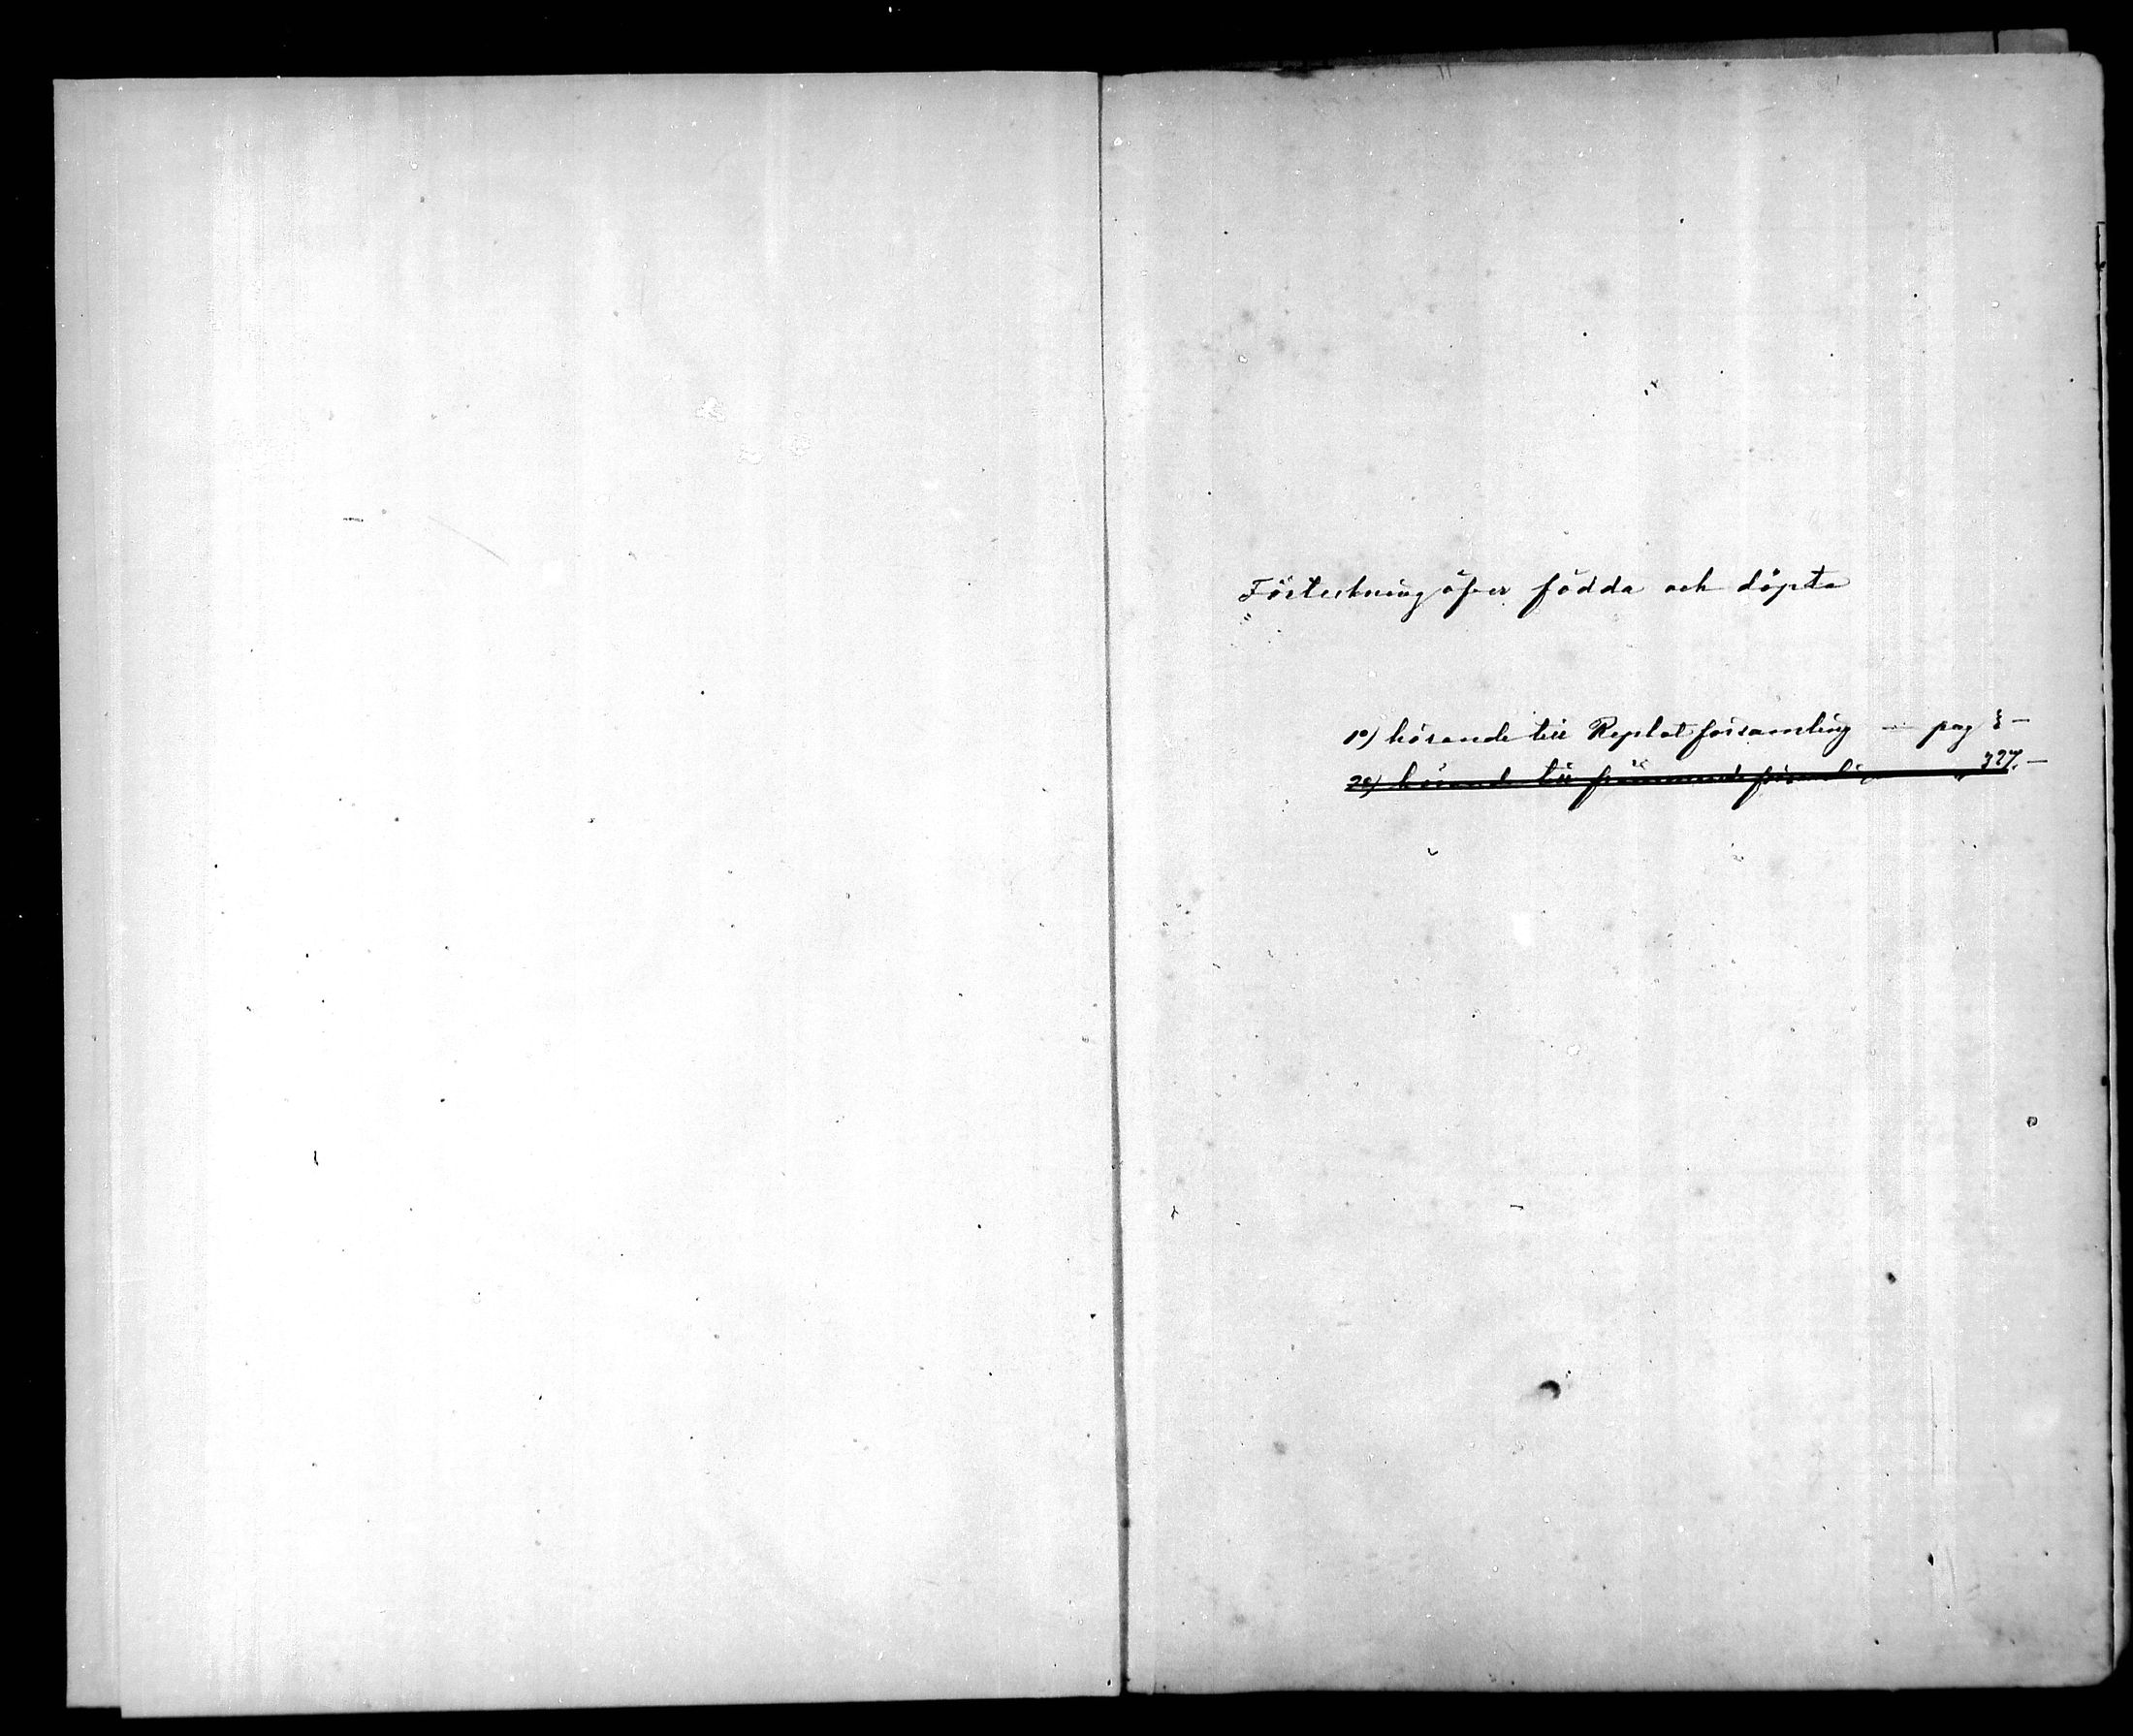 Förteckning öfver födda och döpta
1º) hörande till Replot församling — pag 3 —
2º) hörande till främmande församling " 327. —